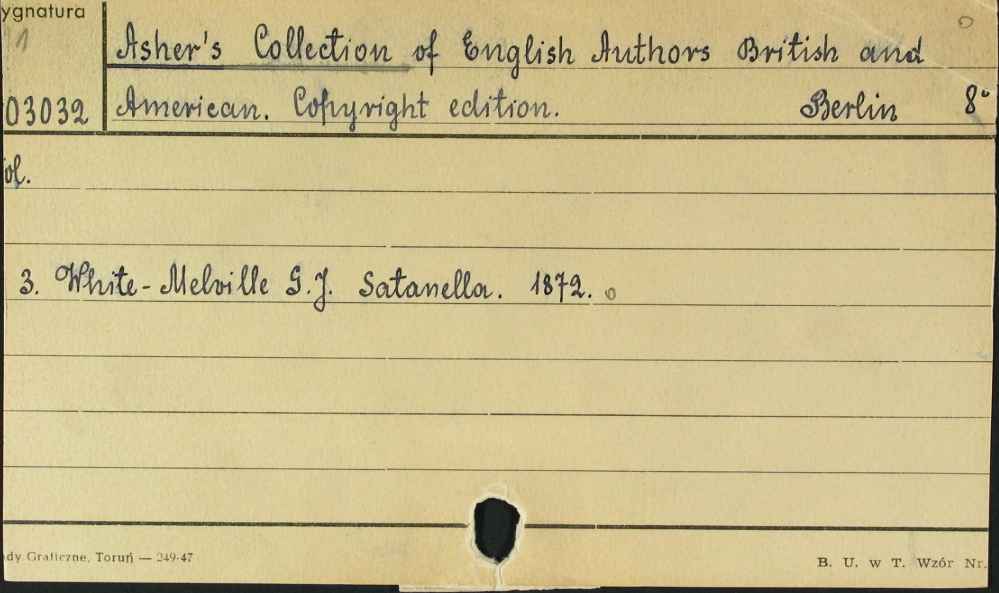 ygnatura
91
Asher's Collection of English Authors British and
03032 American. Copyright edition. Berlin 8°
ol.
3. White-Melville G.J. Satanella. 1872.
dy Graficzne, Toruń — 249-47 B. U. w T. Wzór Nr.